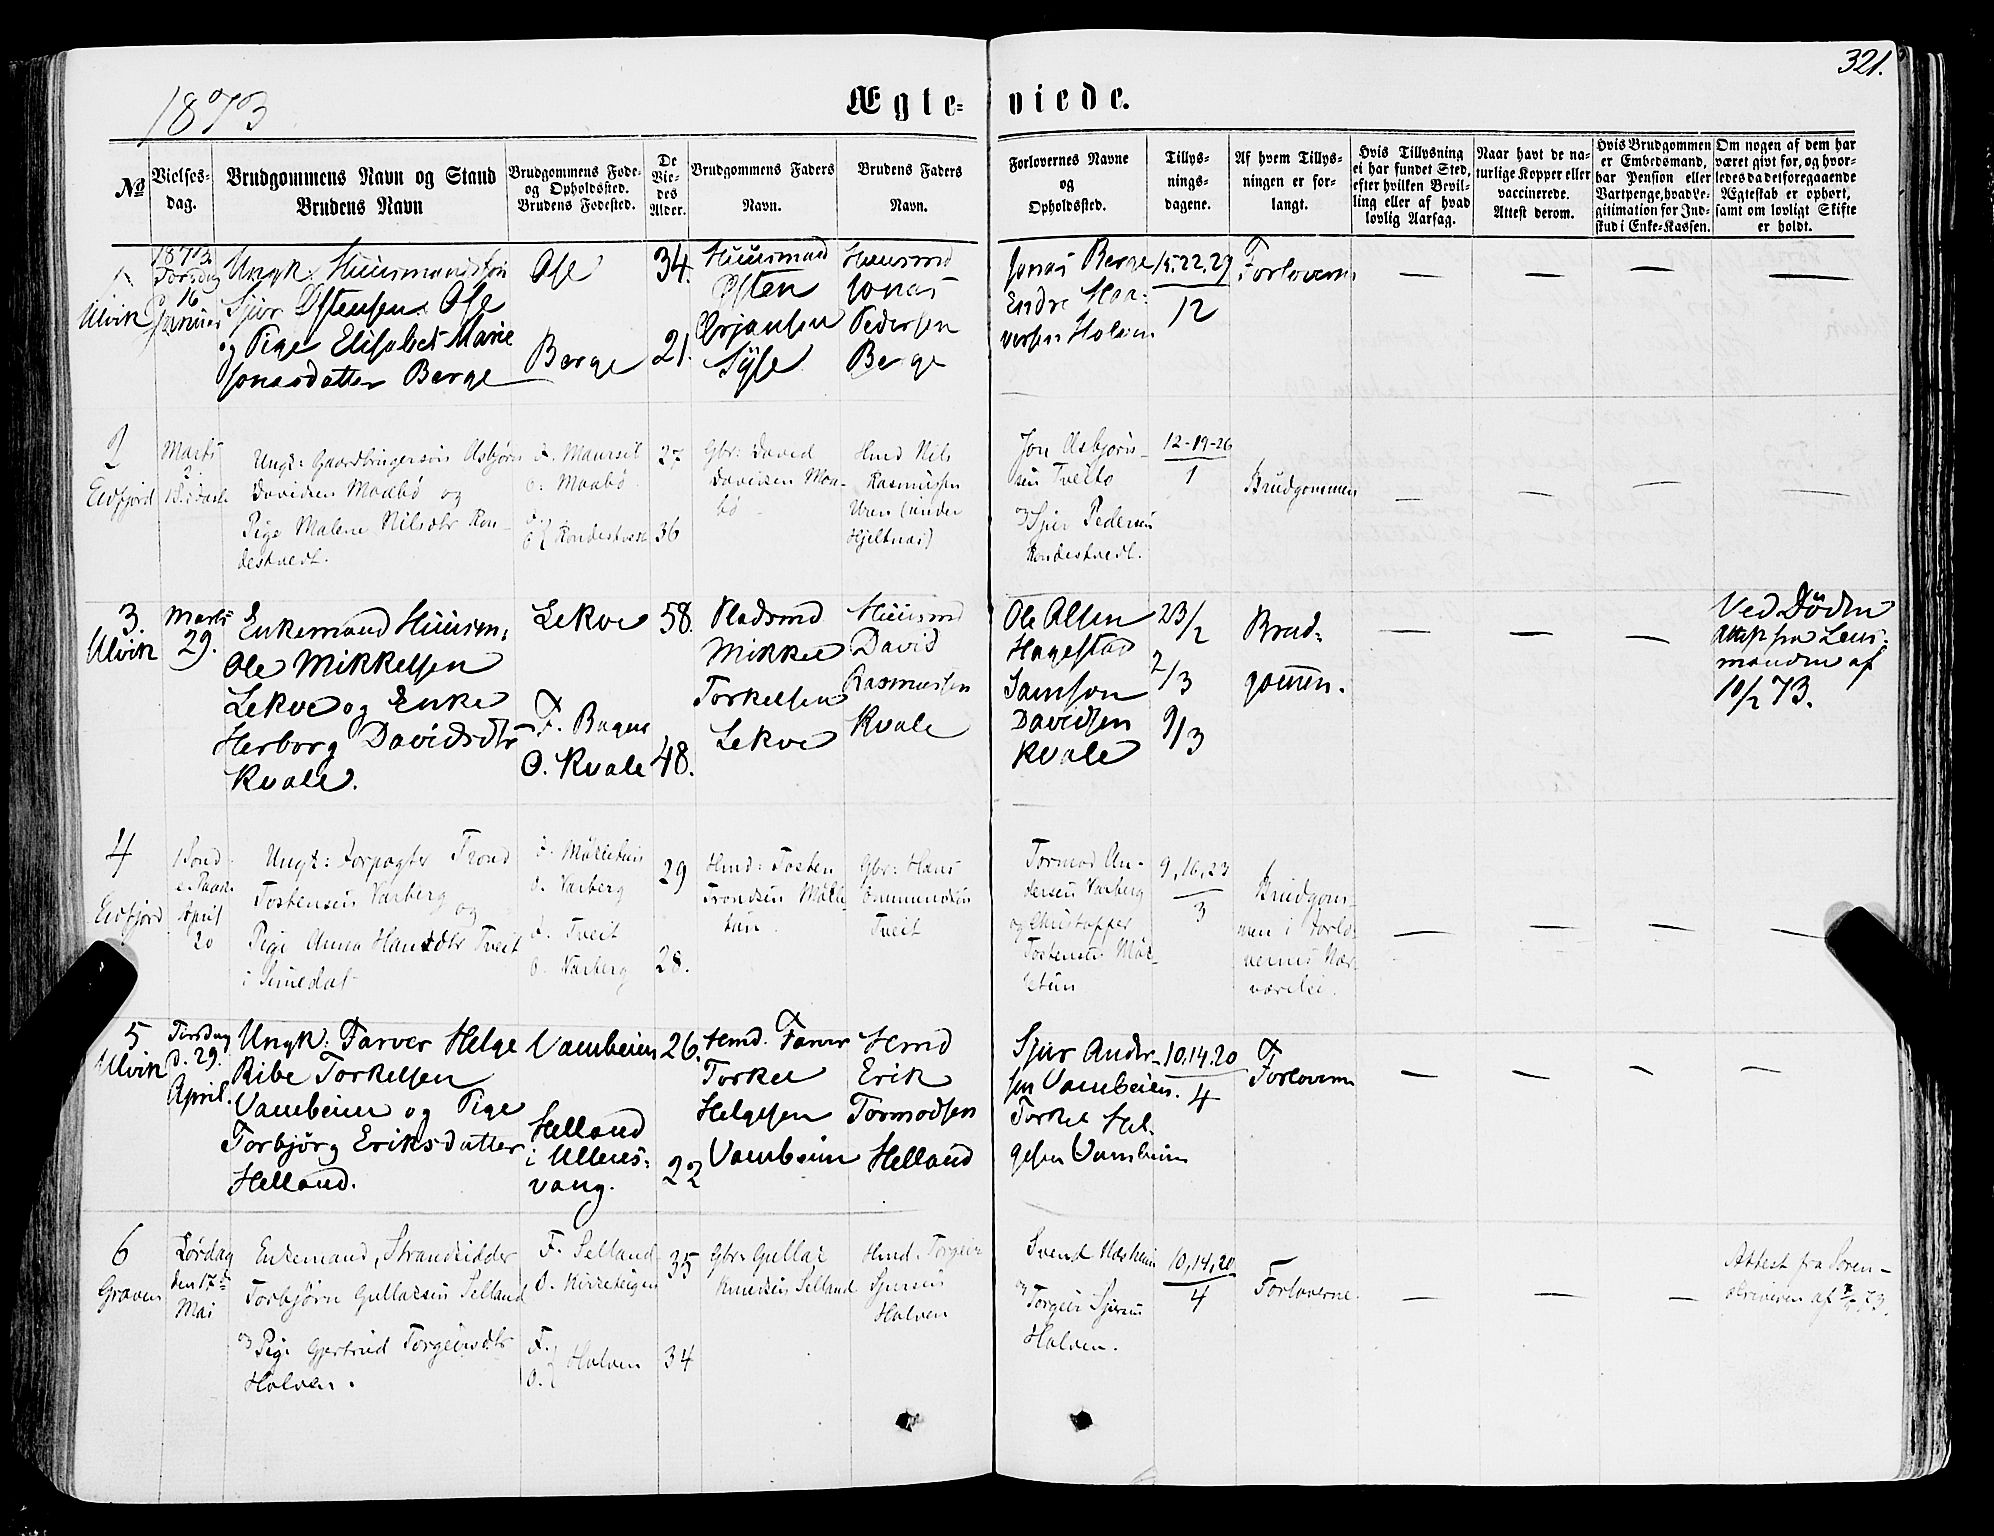 321.
1873
Ægte= viede.
No
Vielses-
dag.
Brudgommens Navn og Stand
Brudens Navn
Brudgommens Føde-
og Opholdssted.
Brudens Fødested.
De
Vie-
des
Alder.
Brudgommens Faders
Navn.
Brudens Faders
Navn.
Forlovernes Navne
og
Opholdssted.
Tillys-
nings-
dagene.
Af hvem Tillys-
ningen er for-
langt.
Hvis Tillysning
ei har fundet Sted,
efter hvilken Bevil-
ling eller af hvad
lovlig Aarsag.
Naar havt de na-
turlige Kopper eller
vaccinerede.
Attest derom.
Hvis Brudgommen
er Embedsmand,
har Pension eller
Vartpenge, hvad Le-
gitimation for Ind-
skud i Enke-Kassen.
Om nogen af dem har
været givt før, og hvor-
ledes da det foregaaende
Ægteskab er ophørt,
samt om lovligt Skifte
er holdt.
1
Ulvik
1873.
Torsdag
16
Januar
Ungk. Huusmandssøn
Sjur Østensen Ose
og Pige Elisabet Marie
Jonasdatter Berge
Ose
Berge
34.
21.
Huusmand
Østen
Ørjansen
Syse
Huusmd
Jonas
Pedersen
Berge
Jonas Berge
Endre Haa-
versen Holven
15.22.29
12
Forloverne
— — — —
2
Eidfjord
Marts
2
Ungk: Gaardbrugersøn Asbjørn
Davidsen Maabø og
Pige Malene Nilsdtr Ron-
destvedt.
F. Maursæt
O. Maabø
F
O } Rondestvedt
27
36
Gbr: David
Davidsen Maa-
bø
Hmd Nils
Rasmussen
Uren (under
Hjeltnæs)
Jon Asbjørn-
sen Tveito
og Sjur Pedersen
Rondestvedt.
12-19-26
1
Brudgommen
— — — —
3.
Ulvik
Marts
29.
Enkemand Huusm.
Ole Mikkelsen
Lekve og Enke
Herborg Davidsdtr
Kvale.
Lekve
F. Bagne
O. Kvale
58.
48.
Pladsmd
Mikkel
Torkelsen
Lekve
Huusmd
David
Rasmussen
Kvale
Ole Olsen
Hagestad
Samson
Davidsen
Kvale
23/2
2/3
9/3
Brud-
gommen.
— — —
Ved Døden
Attest fra Lens-
manden af
10/2 73.
4
Eidfjord
1 Sønd.
e. Paask.
April
20
Ungk: Forpagter Trond
Tostensen Varberg
og
Pige Anna Hansdtr Tveit
i Simedal
F. Mølletun
O. Varberg
F. Tveit
O. Varberg
29
28.
Hmd: Tosten
Trondsen Mølle-
tun.
Gbr: Hans
Ommundsen
Tveit
Tormod An-
dersen Varberg
og Christopher
Tostensen Møl-
letun
9, 16, 23
3
Brudgom-
men i Forlo-
vernes Nær-
værelse.
— — — —
5
Ulvik
Tirsdag
D. 29.
April.
Ungk: Farver Helge
Ribe Torkelsen
Vambeim og Pige
Torbjörg Eriksdatter
Helland.
Vambeim
Helland
i Ullens-
vang.
26.
22
Hmd. Farver
Torkel
Helgesen
Vambeim
Hmd
Erik
Tormodsen
Helland
Sjur Ander-
sen Vambeim.
Torkel Hel-
gesen Vambeim
10,14,20
4
Forloverne
— — — —
6
Graven
Lørdag
den 17de
Mai
Enkemand, Strandsidder
Torbjørn Gullaksen Selland
og Pige Gjertrud Torgeirsdtr
Holven.
F. Selland
O. Kirketeigen
F.
O. } Holven
35
34
Gbr: Gullak
Knudsen Selland
Hmd. Torgeir
Sjursen
Holven
Svend Næsheim
og Torgeir Sjursen
Holven.
10,14,20
4
Forloverne.
— — —
Attest fra Soren-
skriveren af 73.